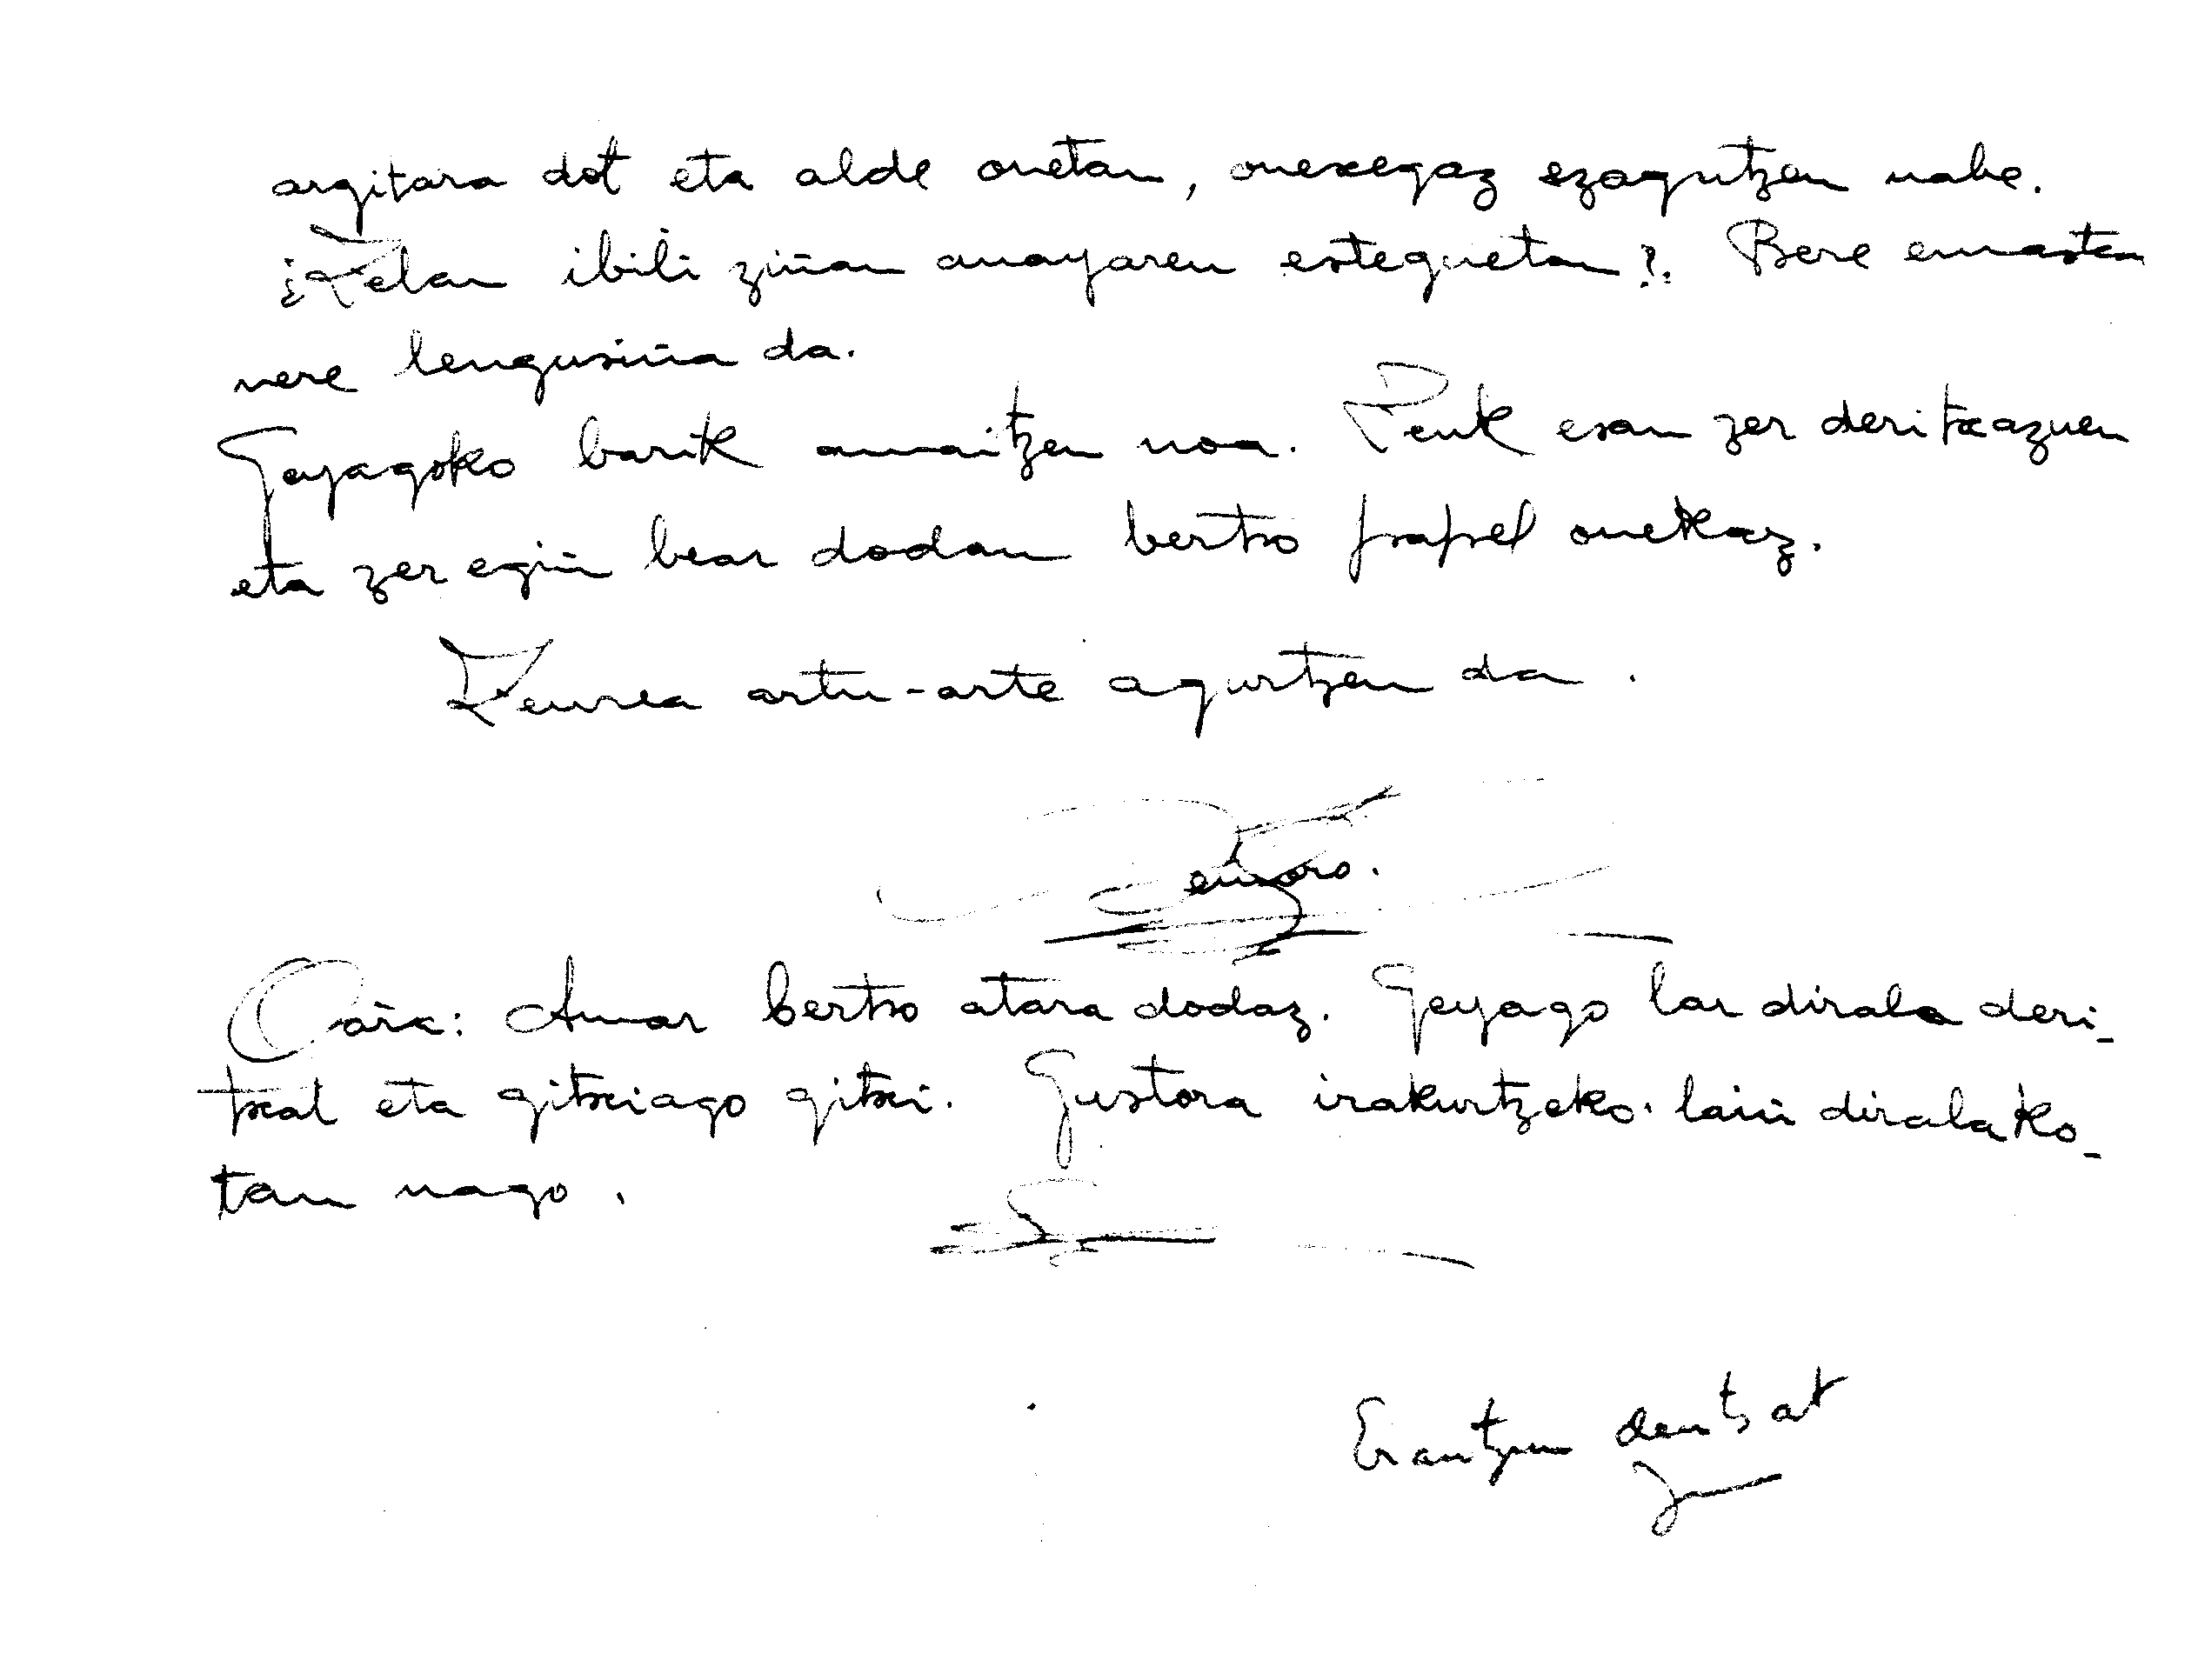 argitara dot eta alde onetan, onexegaz ezagutzen nabe.
¿Zelan ibili ziñan anayaren esteguetan?. Bere emastea
nere lengusiña da.
Geyagoko barik amaitzen noa. Zeuk esan zer deritxazuen
eta zer egiñ bear dodan bertso papel onekaz.
Zeurea artu-arte agurtzen da.
Oařa: Amar bertso atara dodaz. Geyago lar dirala deri-
txat eta gitxiago gitxi. Gustora irakurtzeko laiñ diralako-
tan nago.
Erantzun deutsat